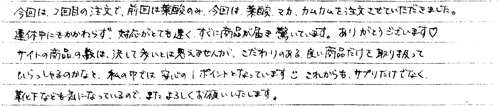 今回は、2回目の注文で、前回は葉酸のみ、今回は葉酸、マカ、カムカムを注文させていただきました。
連休中にもかかわらず対応がとても速く、すぐに商品が届き驚いています。ありがとうございます♡
サイトの商品の数は、決して多いとは思えませんが、こだわりのある、良い商品だけを取り扱って
いらっしゃるのかなと、私の中では安心の1ポイントとなっています これからも、サプリだけでなく、
靴下なども気になっているので、またよろしくお願いいたします。